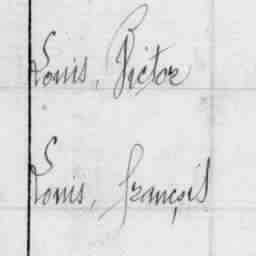 Louis, Victor
Louis, françois